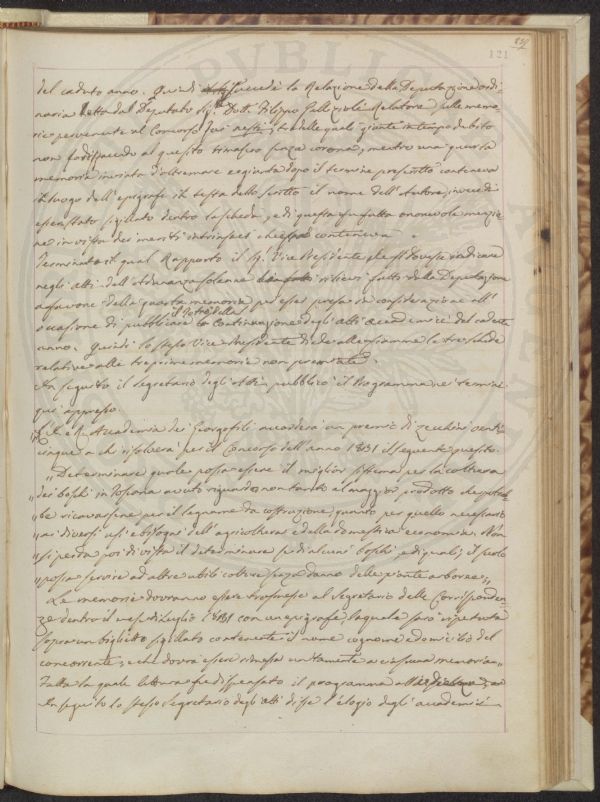 121
del caduto anno. Quindi succedè la Relazione della Deputazione ordi
naria letta dal Deputato Sig. Dott. Filippo Gallizioli Relatore sulle memo
rie pervenute al Concorso, tre delle quali giunte in tempo debito
non sodisfacendo al quesito rimasero senza corona, mentre una quarta
memoria inviata d'oltremare e giunta dopo il termine prescritto conteneva
in luogo dell'epigrafe in testa dello scritto il nome dell'Autore, invece di
esser stato sigillato dentro la scheda, e di questa fu fatta onorevole menzio
ne in vista dei meriti intrinseci che conteneva.
Terminato il qual Rapporto il Sig. Vice Presidente si dovesse indicare
negli atti dell'Adunanza solenne rilievi fatti dalla Deputazione
a favore della quarta memoria per esser presa in considerazione all'
occasione di pubblicare la Continuazione degli Atti accademici del cadente
anno. Quindi lo stesso Vice Presidente diede alle fiamme le tre schede
relative alle tre prime memorie non premiate.
In seguito il Segretario degli Atti pubblicò il Programma nei termini
que' appresso.
L'I. e R. Accademia dei Georgofili accorderà un premio di zecchini venti
cinque a chi risolverà per il Concorso dell'anno 1831 il seguente quesito.
"Determinare quale possa essere il miglior sistema per la coltura
"dei boschi in Toscana avuto riguardo non tanto al maggior prodotto che potreb
"be ricavarsene per il legname da costruzione, quanto per quello necessario
"ai diversi usi e bisogni dell'agricoltura e della domestica economia. Non
"si perda poi di vista il determinare se di alcuni boschi, e di quali, il suolo
"possa servire ad altre utili colture senza danno delle piante arboree."
Le memorie dovranno essere trasmesse al Segretario delle Corrisponden
ze dentro il mese di Luglio 1831 con un'epigrafe, la quale sarà ripetuta
sopra un biglietto sigillato contenente il nome cognome e domicilio del
concorrente, e che dovrà esser rimessa unitamente a ciascuna memoria.
Fatta la quale lettura fu dispensato il programma
In seguito lo stesso Segretario degli Atti disse l'elogio degli accademici